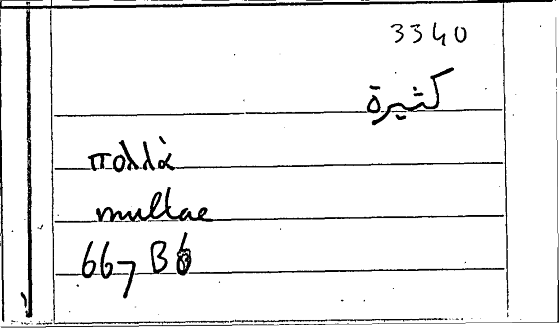 3340
كثيرة
πολλὰ
multae
667 B6